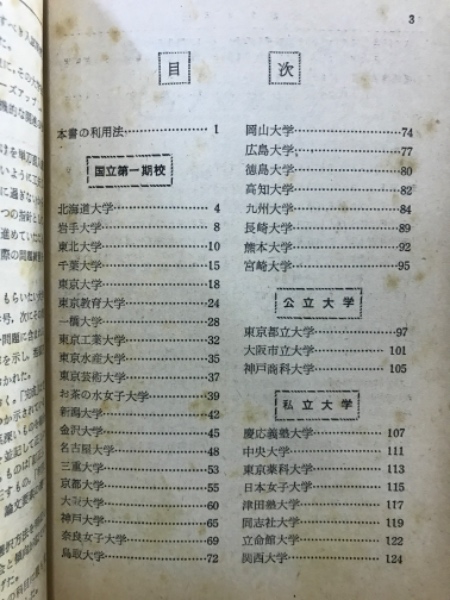 3
目次
本書の利用法…………………1
国立第一期校
北海道大学…………………4
岩手大学…………………8
東北大学…………………10
千葉大学…………………15
東京大学…………………18
東京教育大学…………………24
一橋大学…………………28
東京工業大学…………………32
東京水産大学…………………35
東京芸術大学…………………37
お茶の水女子大学…………………39
新潟大学…………………42
金沢大学…………………45
名古屋大学…………………48
三重大学…………………53
京都大学…………………55
大阪大学…………………60
神戸大学…………………65
奈良女子大学…………………69
鳥取大学…………………72
岡山大学…………………74
広島大学…………………77
徳島大学…………………80
高知大学…………………82
九州大学…………………84
長崎大学…………………89
熊本大学…………………92
宮崎大学…………………95
公立大学
東京都立大学…………………97
大阪市立大学…………………101
神戸商科大学…………………105
私立大学
慶応義塾大学…………………107
中央大学…………………111
東京薬科大学…………………113
日本女子大学…………………115
津田塾大学…………………117
同志社大学…………………119
立命館大学…………………122
関西大学…………………124